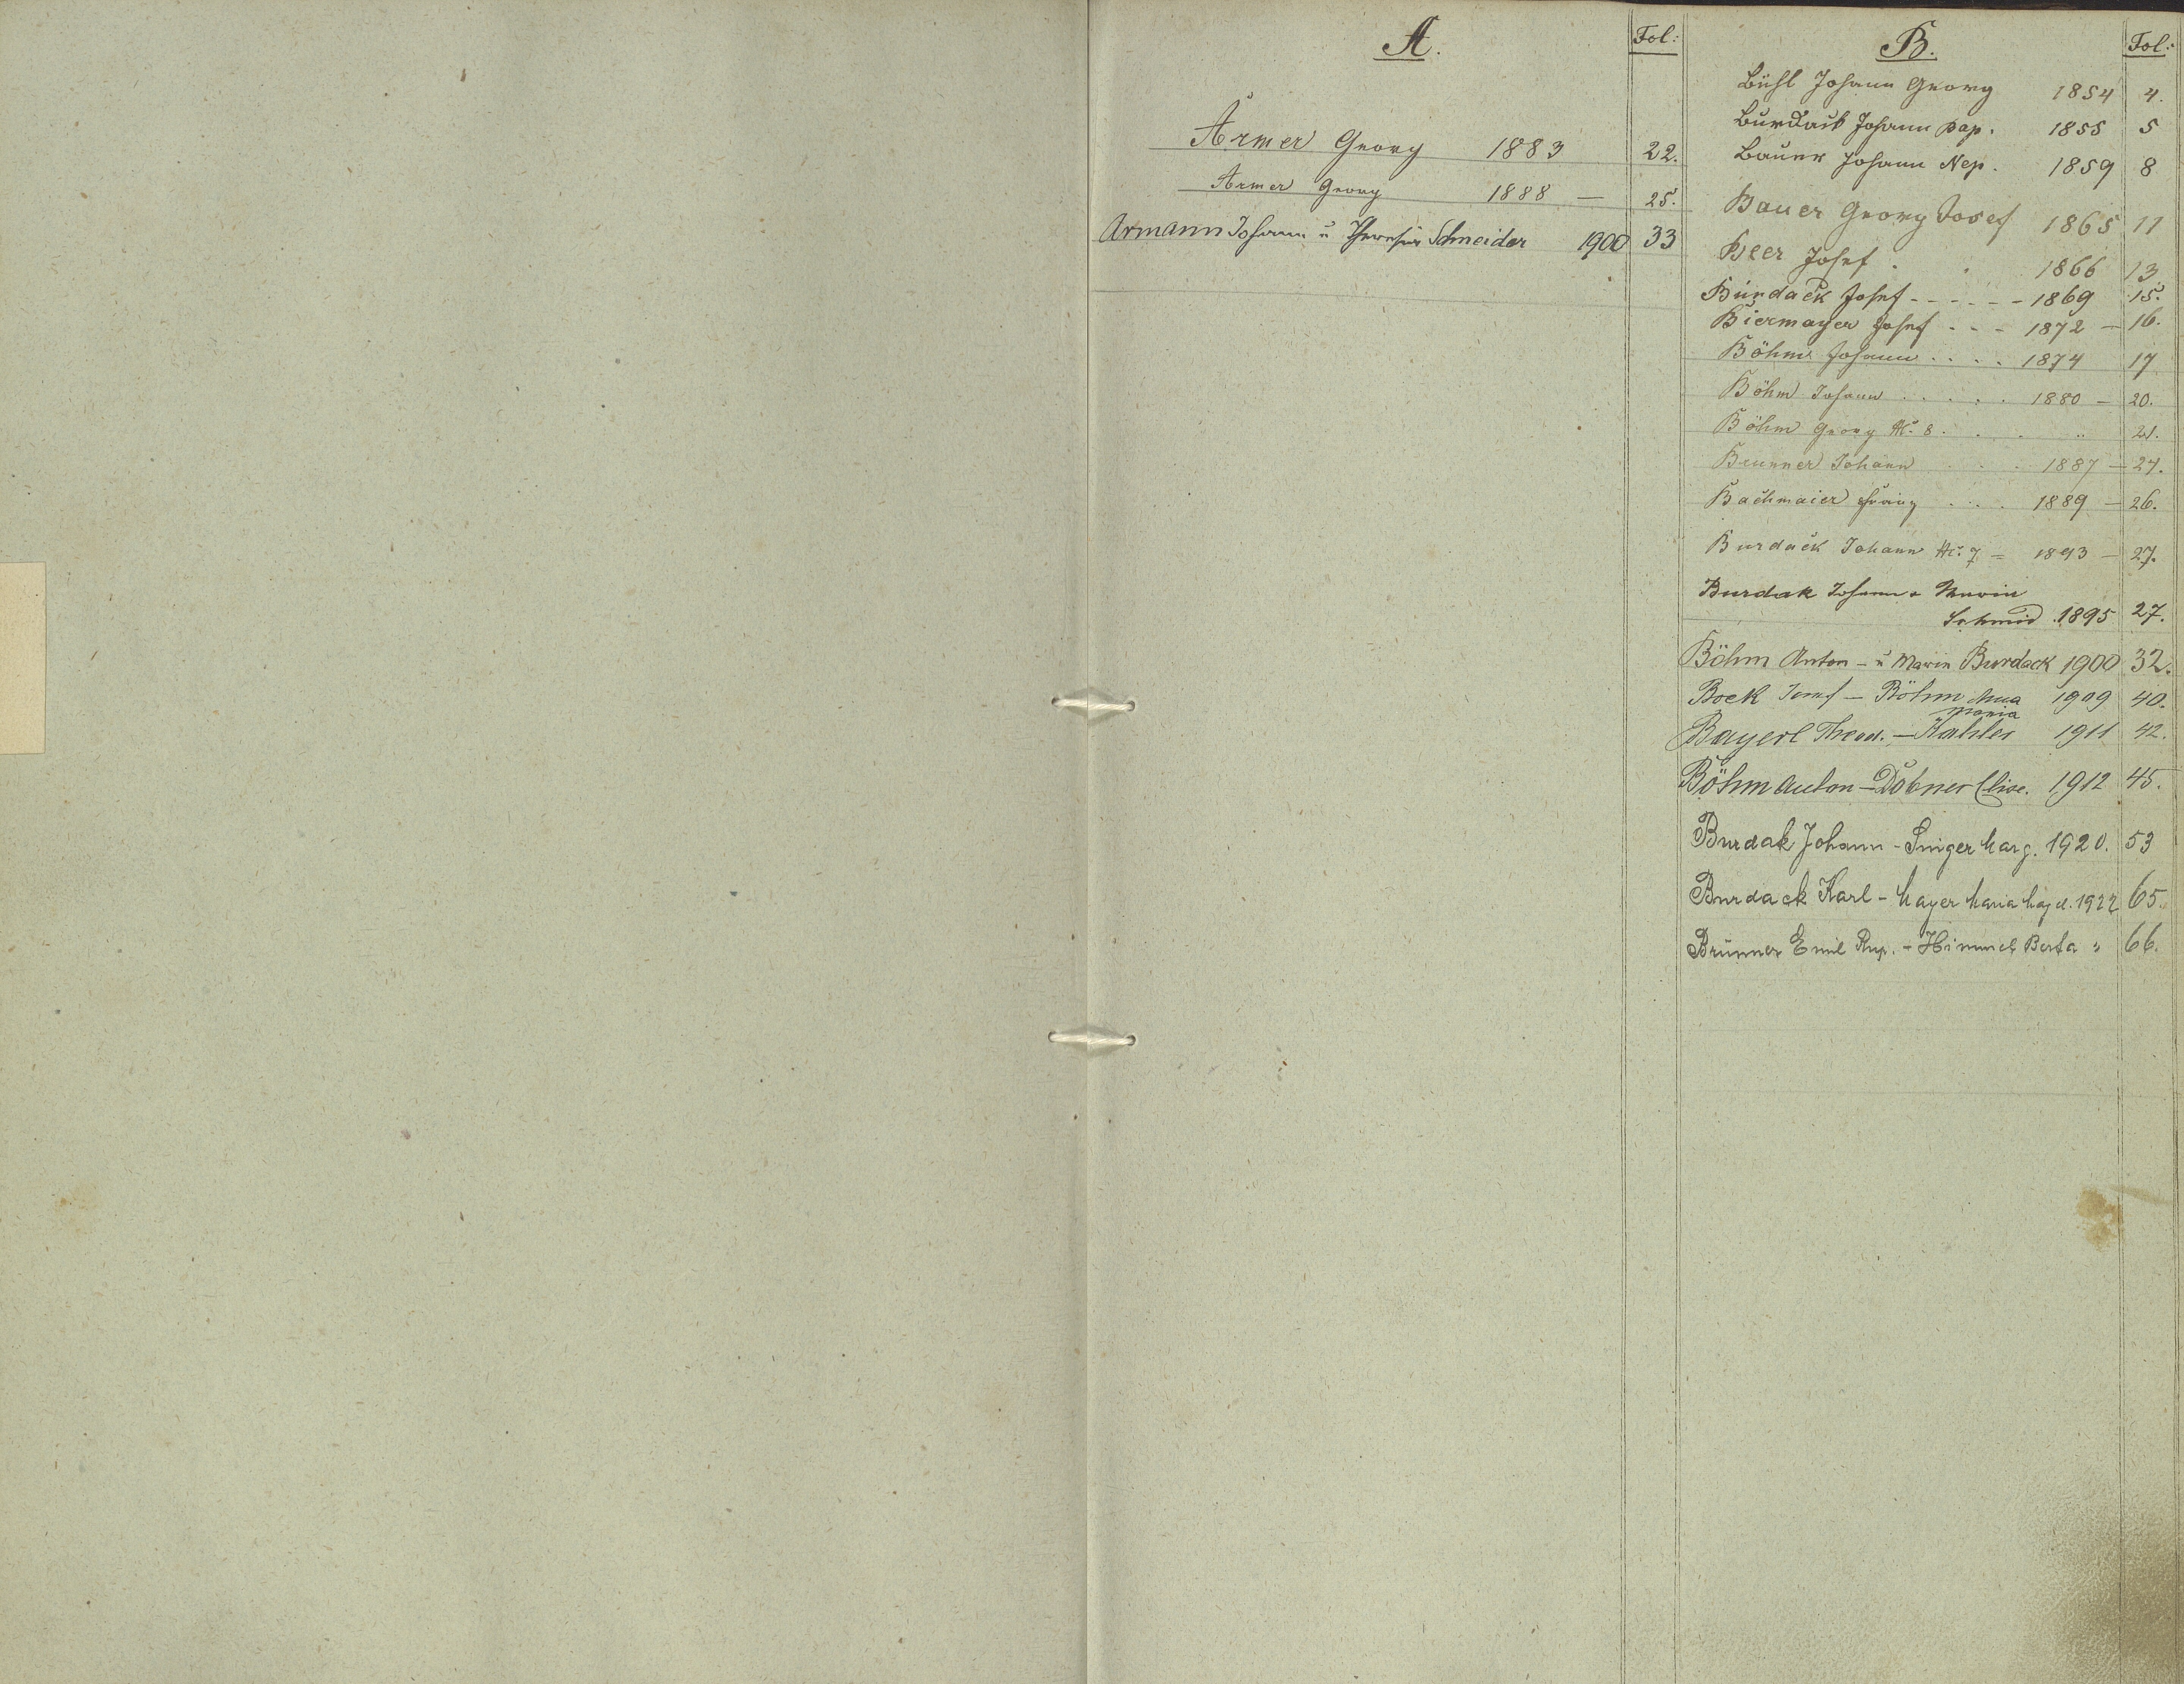 A. Fol:
Armer Georg 1883 22.
Armer Georg 1888 — 25.
Armann Johann u Theresia Schneider 1900 33
B. Fol:
Bühl Johann Georg 1854 4.
Burdack Johann Bap. 1855 5
Bauer Johann Nep. 1859 8
Bauer Georg Josef 1865 11
Beer Josef . . 1866 13
Burdack Josef - - - - - - 1869 15.
Biermayer Josef - - - 1872 — 16.
Böhm Johann . . . . 1874 17
Böhm Johann . . . . . 1880 — 20.
Böhm Georg Nr. 8 . . . " 21.
Brunner Johann . . . 1887 — 24.
Bachmaier Franz . . . 1889 — 26.
Burdack Johann Nr. 7 = 1893 — 27.
Burdak Johann u Maria
Schmid 1895 27.
Böhm Anton — u Maria Burdack 1900 32.
Bock Josef — Böhm Anna 1909 40.
Maria
Bayerl Theod. — Kahler 1911 42.
Böhm Anton — Döbner Elise. 1912 45.
Burdak Johann - Singer Marg. 1920. 53
Burdack Karl - Mayer Maria Magd. 1922 65.
Brunner Emil Rup. - Himmel Berta " 66.